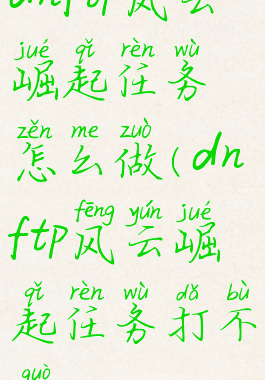 dnftp风云
jué qǐ rèn wù
崛起任务
zěn me zuò
怎么做(dn
fēng yún jué
ftp风云崛
qǐ rèn wù dǎ bù
起任务打不
guò